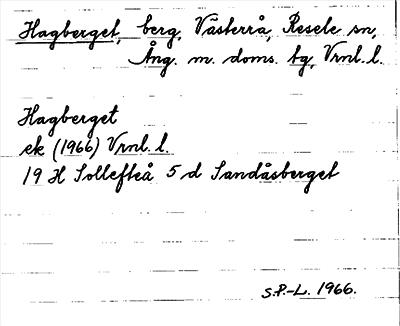 Hagberget, berg, Västerrå, Resele sn,
Ång. m. doms. tg, Vrnl. l.
Hagberget
ek (1966) Vrnl. l.
19 H Sollefteå 5 d Sandåsberget
S.P.-L. 1966.